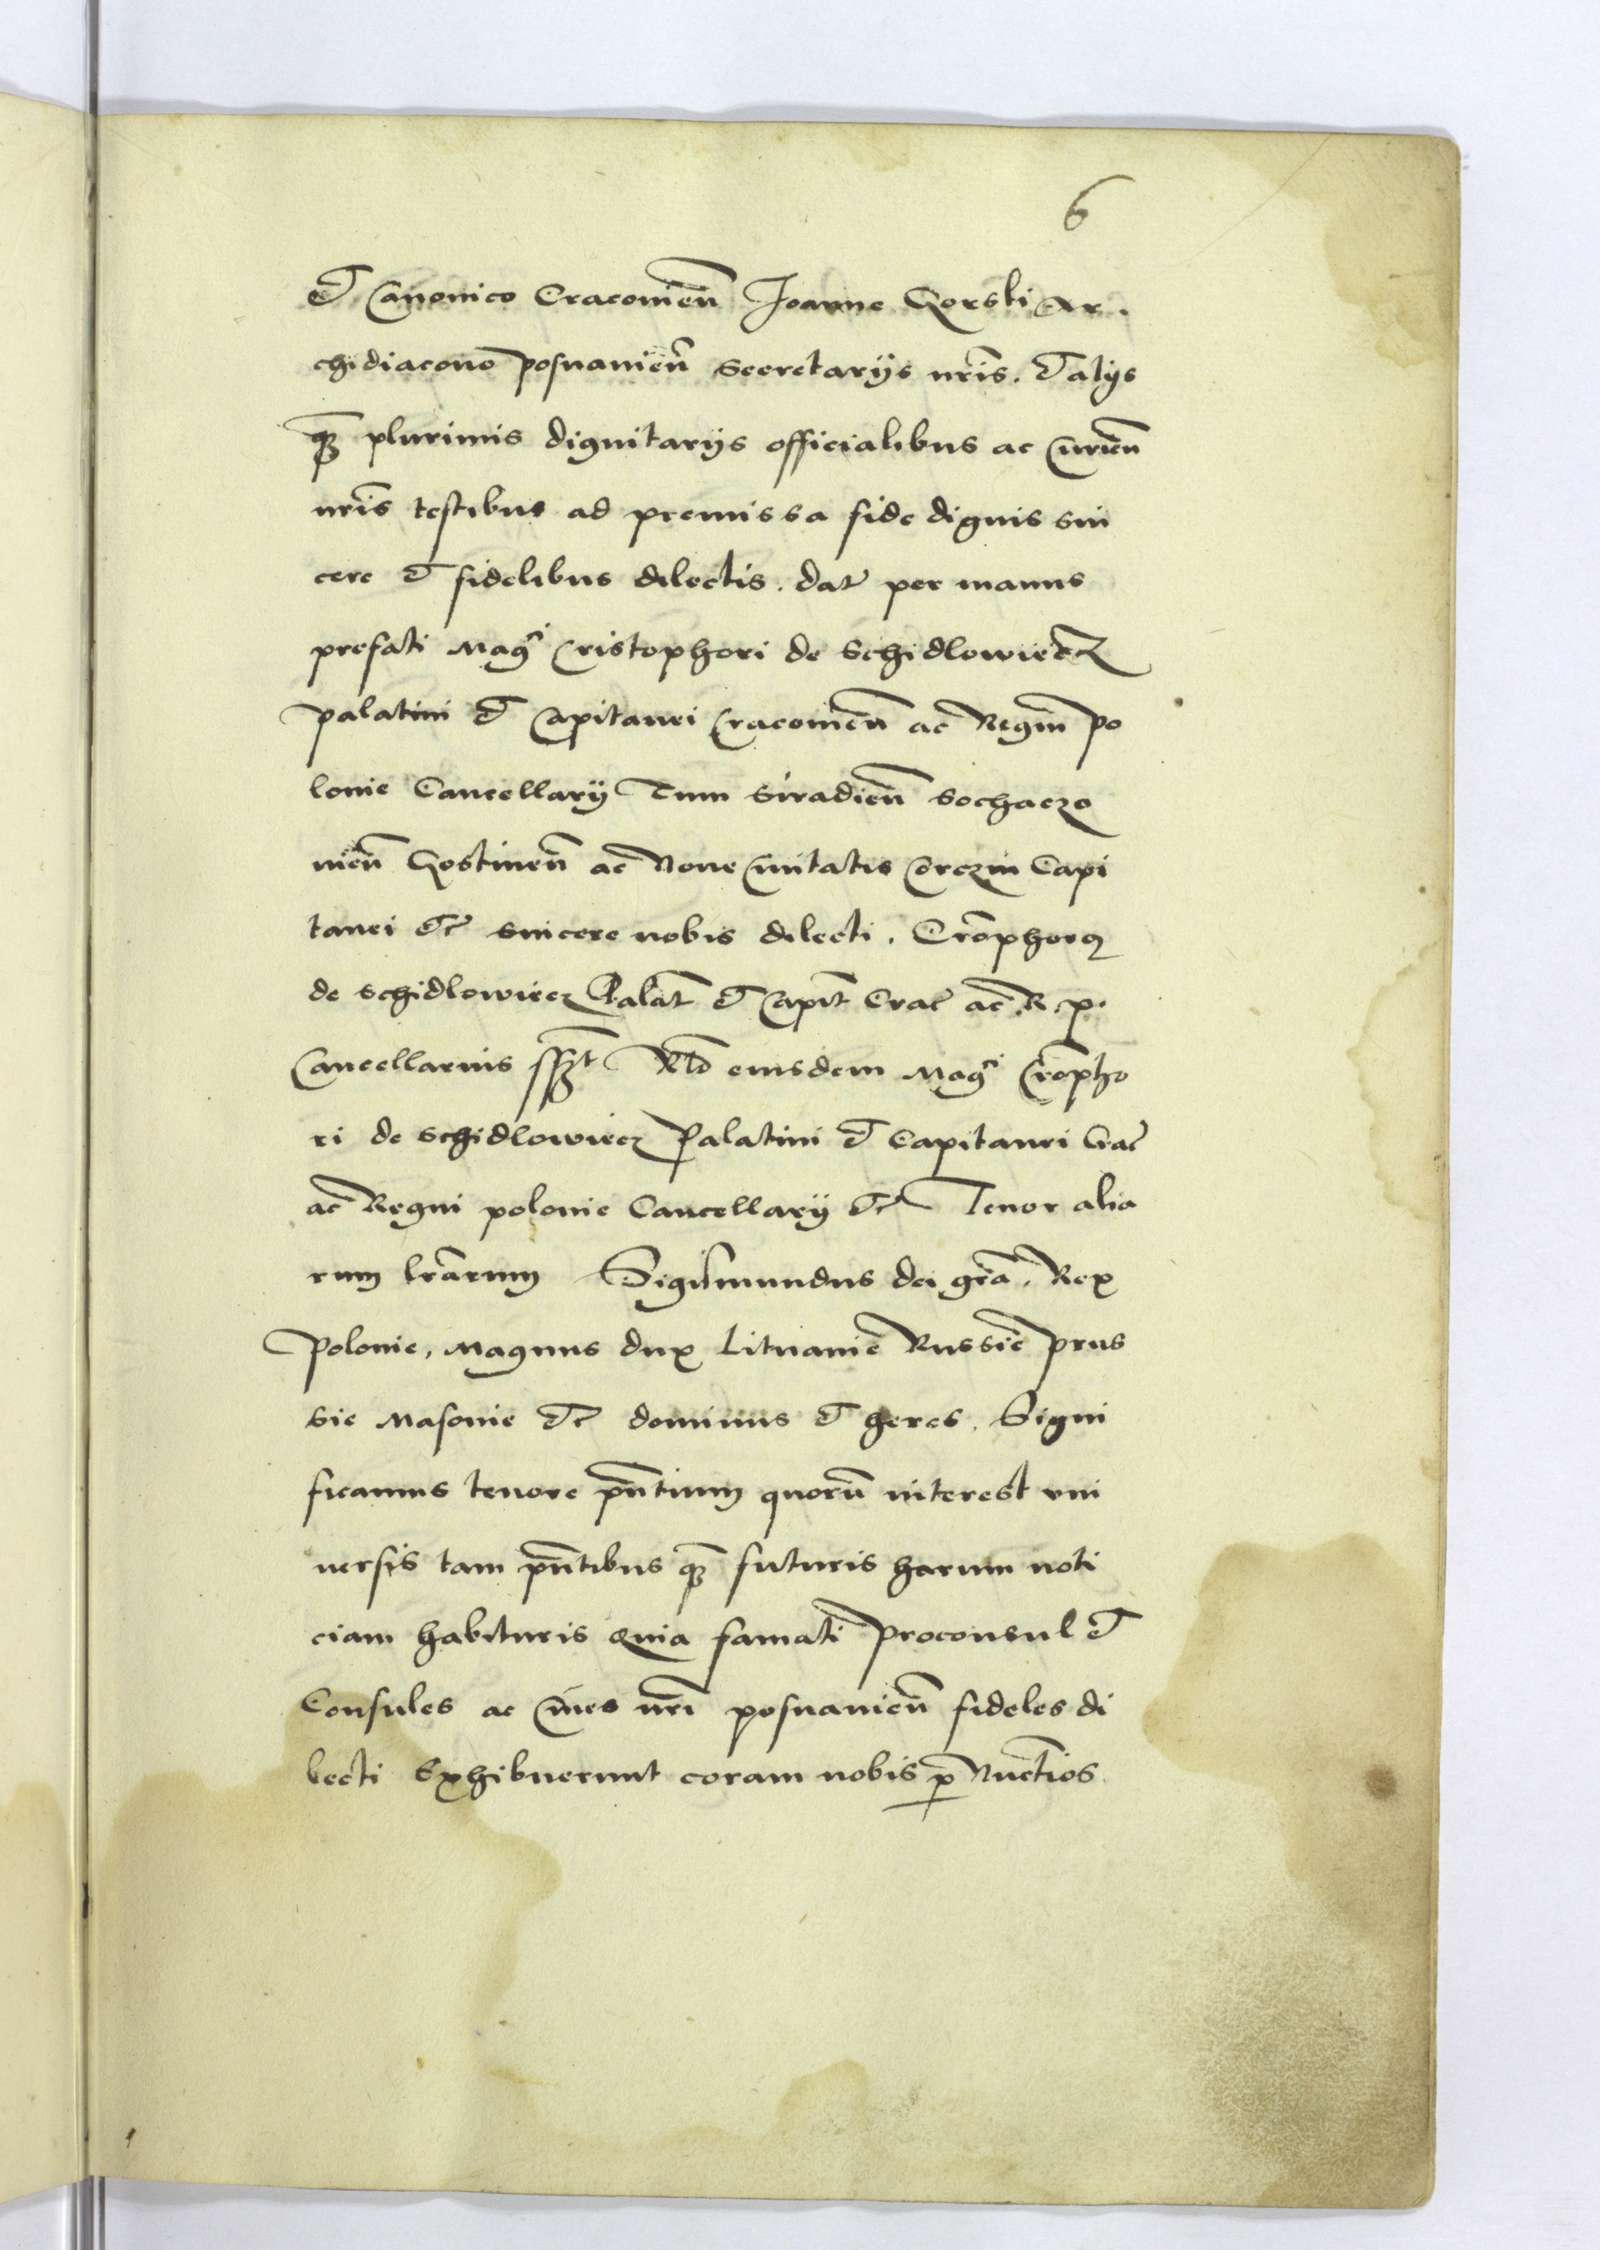 6
et Canonico Cracovien̄ Joanne Gorski Ar.
chidiacono posnanien̄ secretarijs nr̄is. et alijs
qȝ plurimis dignitarijs officialibus ac Curien̄
nr̄is testibus ad premissa fide dignis sin
cere et fidelibus dilectis. dat̄ per manus
prefati Magci Cristophori de Schidlowiecz
palatini et Capitanei Cracovien̄ ac Regni po
lonie Cancellarij Tum Siradien̄ Sochaczo
vien̄ Gostinen̄ ac Noue Ciuitatis Corczin Capi
tanei etc sincere nobis dilecti. Cr̄ophorus
de Schidlowiecz Palat̄ et Capit̄ Crac̄ ac R. p.
Cancellarius sst Rlō eiusdem Magci Cr̄opho
ri de Schidlowiecz Palatini et Capitanei Crac̄
ac Regni polonie Cancellarij etc Tenor alia
rum lr̄arum Sigismundus dei gr̄a. Rex
Polonie, Magnus dux Lituanie Russie Prus
sie Masouie etc dominus et heres. Signi
ficamus tenore pn̄tium quorū interest vni
uersis tam pn̄tibus qȝ futuris harum noti
ciam habituris Quia famati Proconsul et
Consules ac Ciues nr̄i posnanien̄ fideles di
lecti Exhibuerunt coram nobis p Nuctios